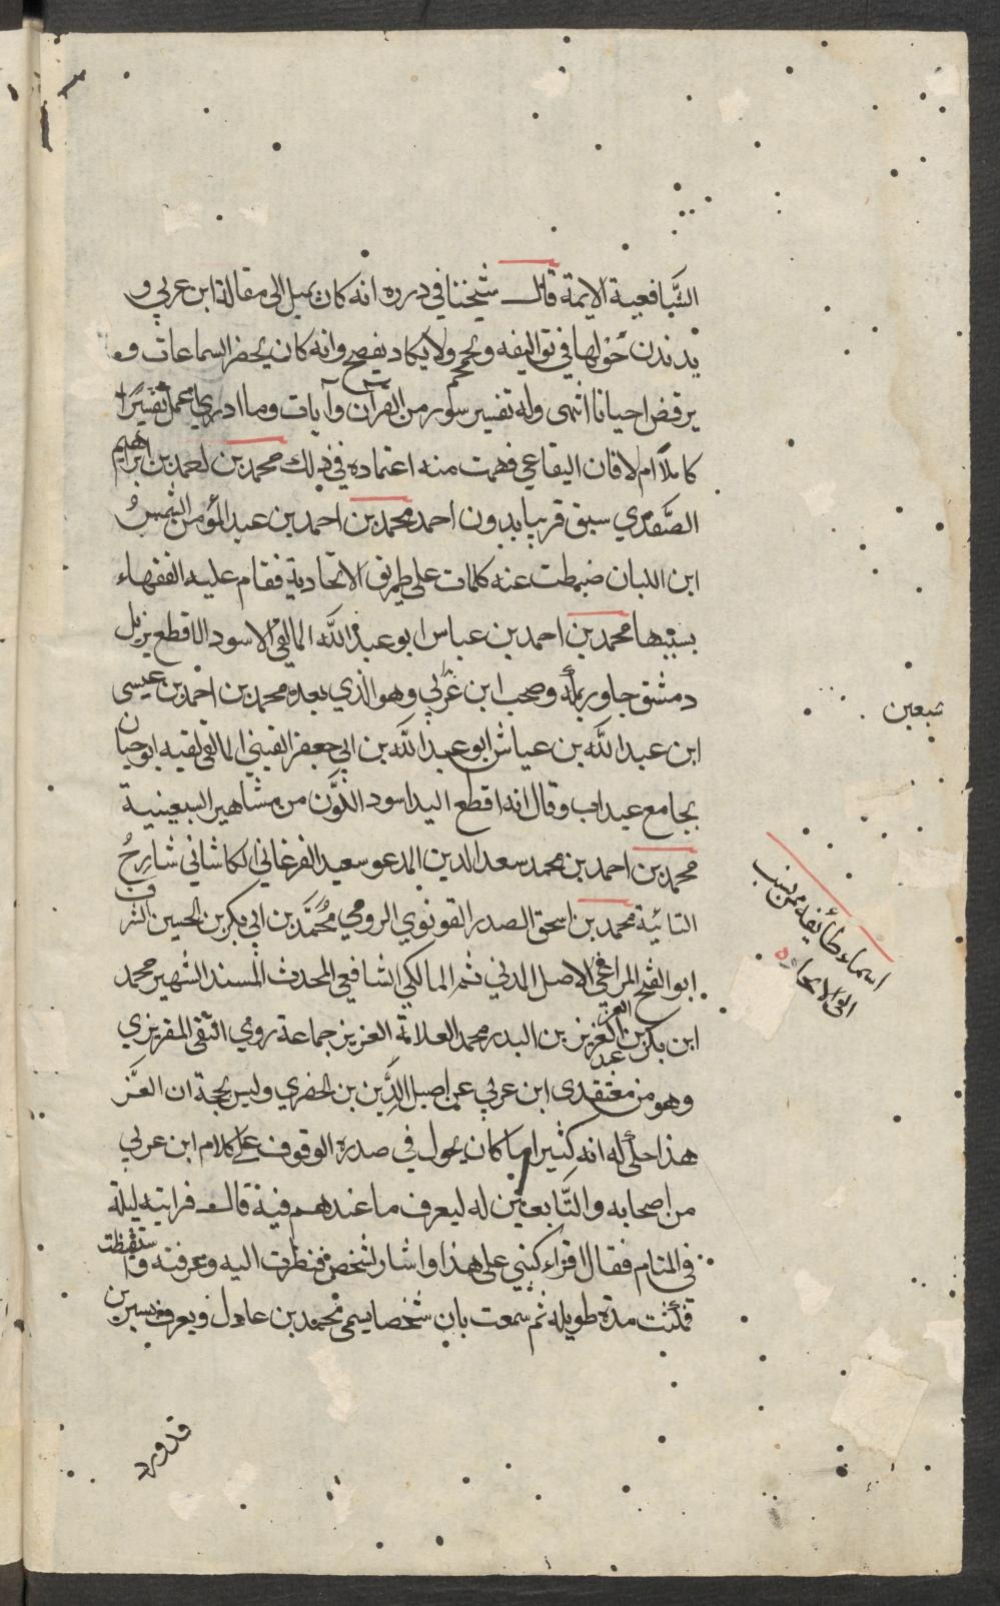 الشافعية الايمة قال شيخنا في درره انه كان يميل الى مقالة ابن عربي و
يدندن حولها في تواليفه ويجمجم ولا يكاد يفصح وانه كان يحضر السماعات و
يرقص احيانا انتهى وله تفسير سور من القرآن وآيات وما ادري اعمل تفسيرا
كاملا ام لا فان البقاعي فهمت منه اعتماده في ذلك محمد بن احمد بن ابراهيم
الصفدي سبق قريبا بدون احمد محمد بن احمد بن عبد المؤمن الشمس
ابن اللبان ضبطت عنه كلمات على طريق الاتحادية فقام عليه الفقهاء
بسببها محمد بن احمد بن عباس ابو عبد الله المالقي الاسود الاقطع نزيل
دمشق جاور بمكة وصحب ابن عربي وهو الذي بعده محمد بن احمد بن عيسى
ابن عبد الله بن عياش ابو عبد الله بن ابي جعفر القيني المالقي لقيه ابو حيان
بجامع عيداب وقال انه اقطع اليد اسود اللون من مشاهير السبعينية
محمد بن احمد بن محمد سعد الدين المدعو سعيد الفرغاني الكاشاني شارح
التائية محمد بن اسحق الصدر القونوي الرومي محمد بن ابي بكر بن الحسين الشرف
ابو الفتح المراغي الاصل المدني ثم المالكي الشافعي المحدث المسند الشهير محمد
ابن بكر بن العز عبد العزيز بن البدر محمد العلامة العز بن جماعة روى التقي المقريزي
وهو من معتقدي ابن عربي عن اصيل الدين بن الخضري وليس بحجة ان العز
هذا حكى له انه كثيرا ما كان يحول في صدره الوقوف على كلام ابن عربي
من اصحابه والتابعين له ليعرف ما عندهم فيه قال فرايته ليلة
في المنام فقال اقراء كتبي على هذا واشار لشخص فنظرت اليه وعرفته واستيقظت
فمكثت مدة طويلة ثم سمعت بان شخصا يسمى محمد بن عادل ويعرف بسيرين
سبعين
اسماء طائفة ممن ينسب
الى الاتحاد